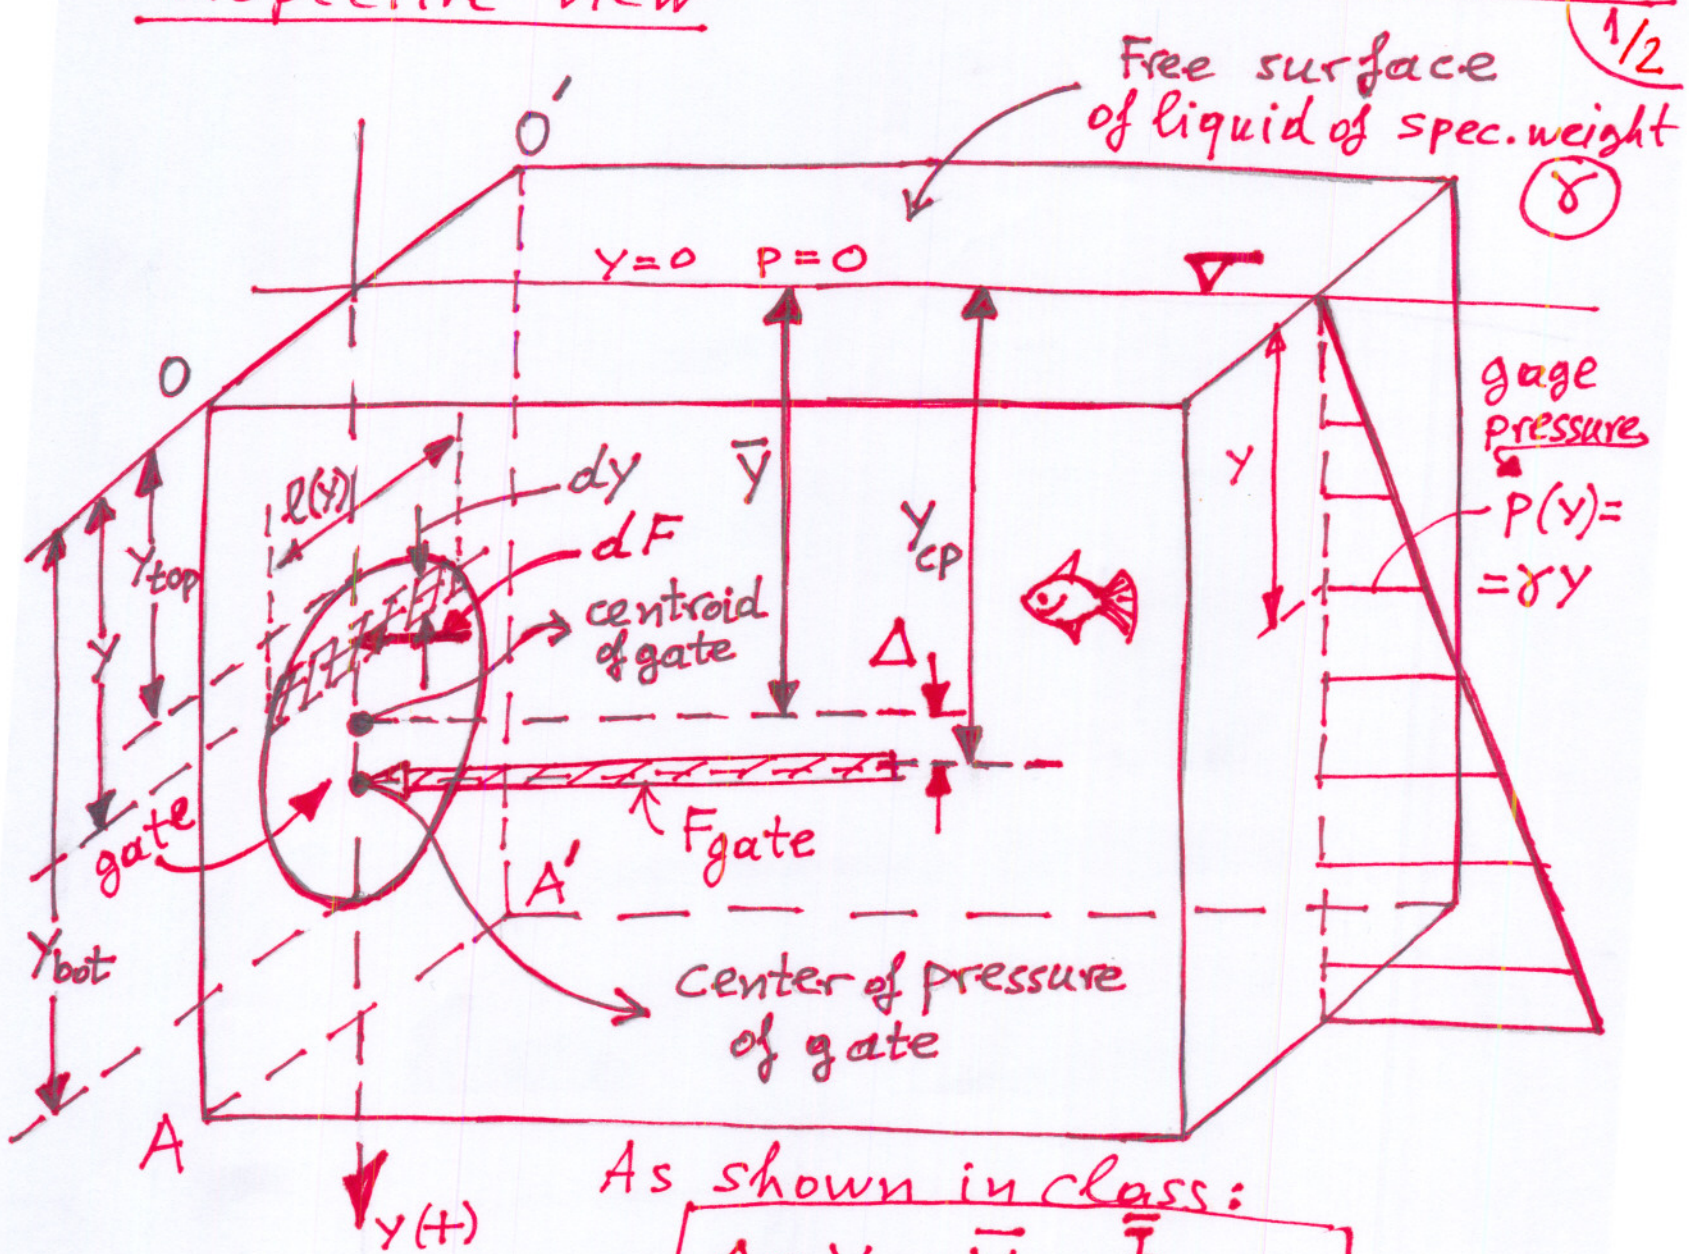 view
1/2
Free surface
of liquid of spec. weight
γ
O'
y=0 P=0
O
gage
pressure
P(y)=
=γy
y
l(y)
dy
dF
ȳ
y_cp
y_top
y
centroid
of gate
Δ
gate
F_gate
A'
y_bot
center of pressure
of gate
A
As shown in class:
y(+)